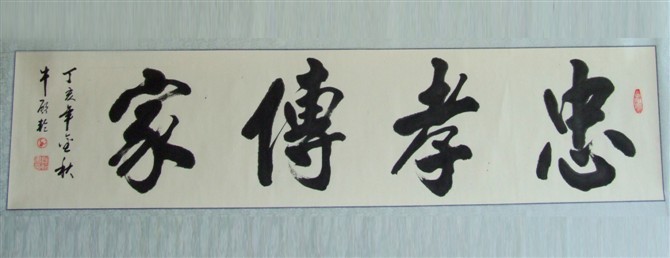 忠孝傳家
丁亥年金秋
牛